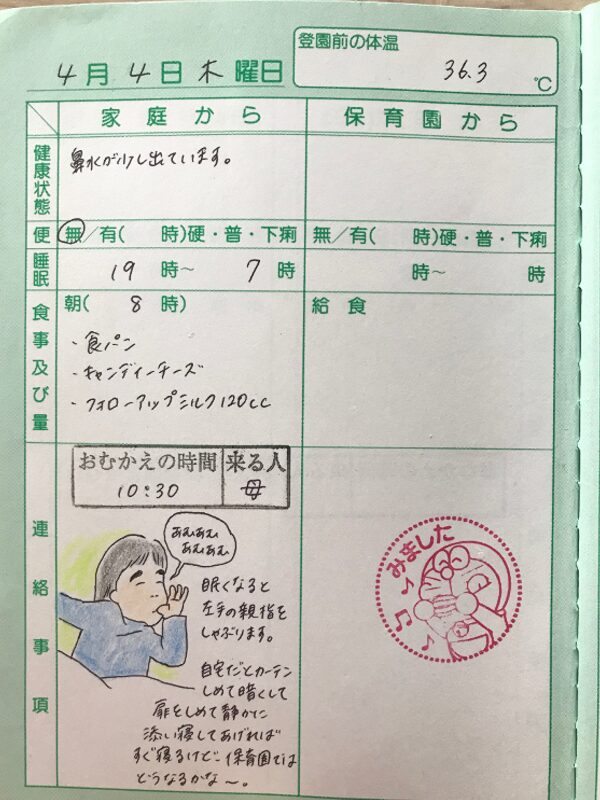 登園前の体温
4月4日木曜日
36.3
℃
家庭から
保育園から
健康状態
鼻水が少し出ています。
便
無/有( 時)硬・普・下痢
無/有( 時)硬・普・下痢
睡眠
19時~7時
時~ 時
食事及び量
朝( 8 時)
給食
・食パン
・キャンディーチーズ
・フォローアップミルク120cc
連絡事項
おむかえの時間
来る人
10:30
母
あむあむ
あむあむ
眠くなると
左手の親指を
しゃぶります。
自宅だとカーテン
しめて暗くして
扉をしめて静かに
添い寝してあげれば
すぐ寝るけど… 保育園では
どうなるかな〜。
みました